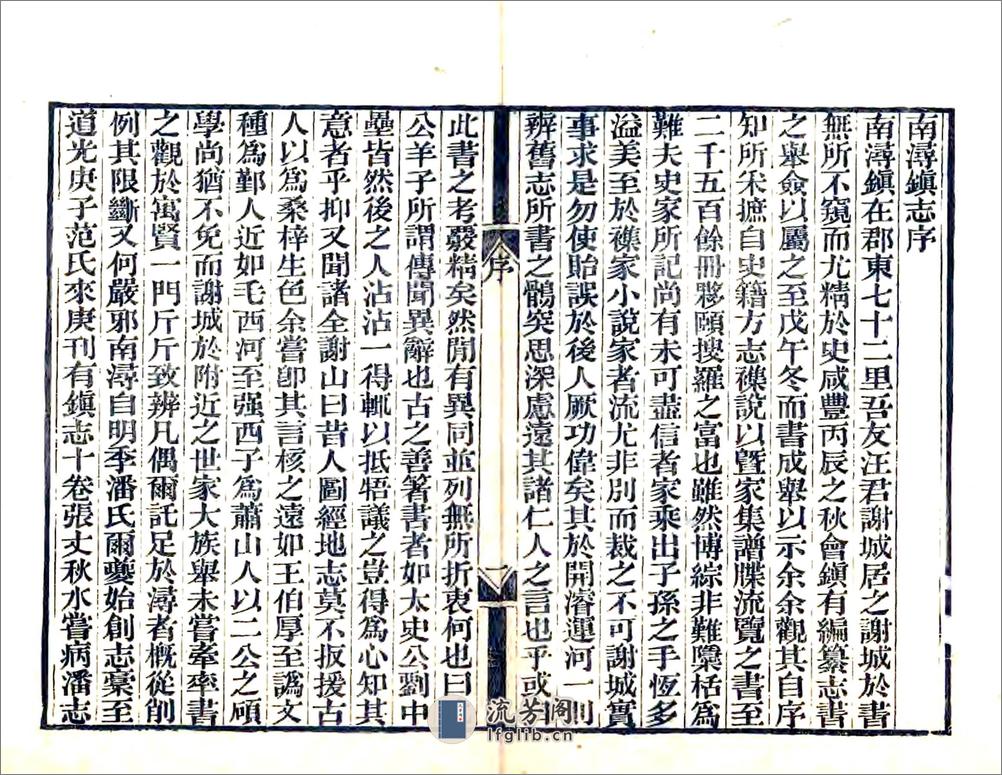 南潯鎮志序
南潯鎮在郡東七十二里吾友汪君謝城居之謝城於書
無所不窺而尤精於史咸豐丙辰之秋會鎮有編纂志書
之舉僉以屬之至戊午冬而書成舉以示余余觀其自序
知所采摭自史籍方志襍說以曁家集譜牒流覽之書至
二千五百餘冊夥頤搜羅之富也雖然博綜非難櫽栝爲
難夫史家所記尚有未可盡信者家乘出子孫之手恆多
溢美至於襍家小說家者流尤非別而裁之不可謝城實
事求是勿使貽誤於後人厥功偉矣其於開濬運河一則
辨舊志所書之鶻突思深慮遠其諸仁人之言也乎或曰
序
一
此書之考覈精矣然閒有異同並列無所折衷何也曰
公羊子所謂傳聞異辭也古之善箸書者如太史公劉中
壘皆然後之人沾沾一得輒以抵牾議之豈得爲心知其
意者乎抑又聞諸全謝山曰昔人圖經地志莫不扳援古
人以爲桑梓生色余嘗卽其言核之遠如王伯厚至譌文
種爲鄞人近如毛西河至强西子爲蕭山人以二公之碩
學尚猶不免而謝城於附近之世家大族舉未嘗牽率書
之觀於寓賢一門斤斤致辨凡偶爾託足於潯者概從削
例其限斷又何嚴邪南潯自明季潘氏爾夔始創志稾至
道光庚子范氏來庚刊有鎮志十卷張丈秋水嘗病潘志
流芳阁
lfglib.cn